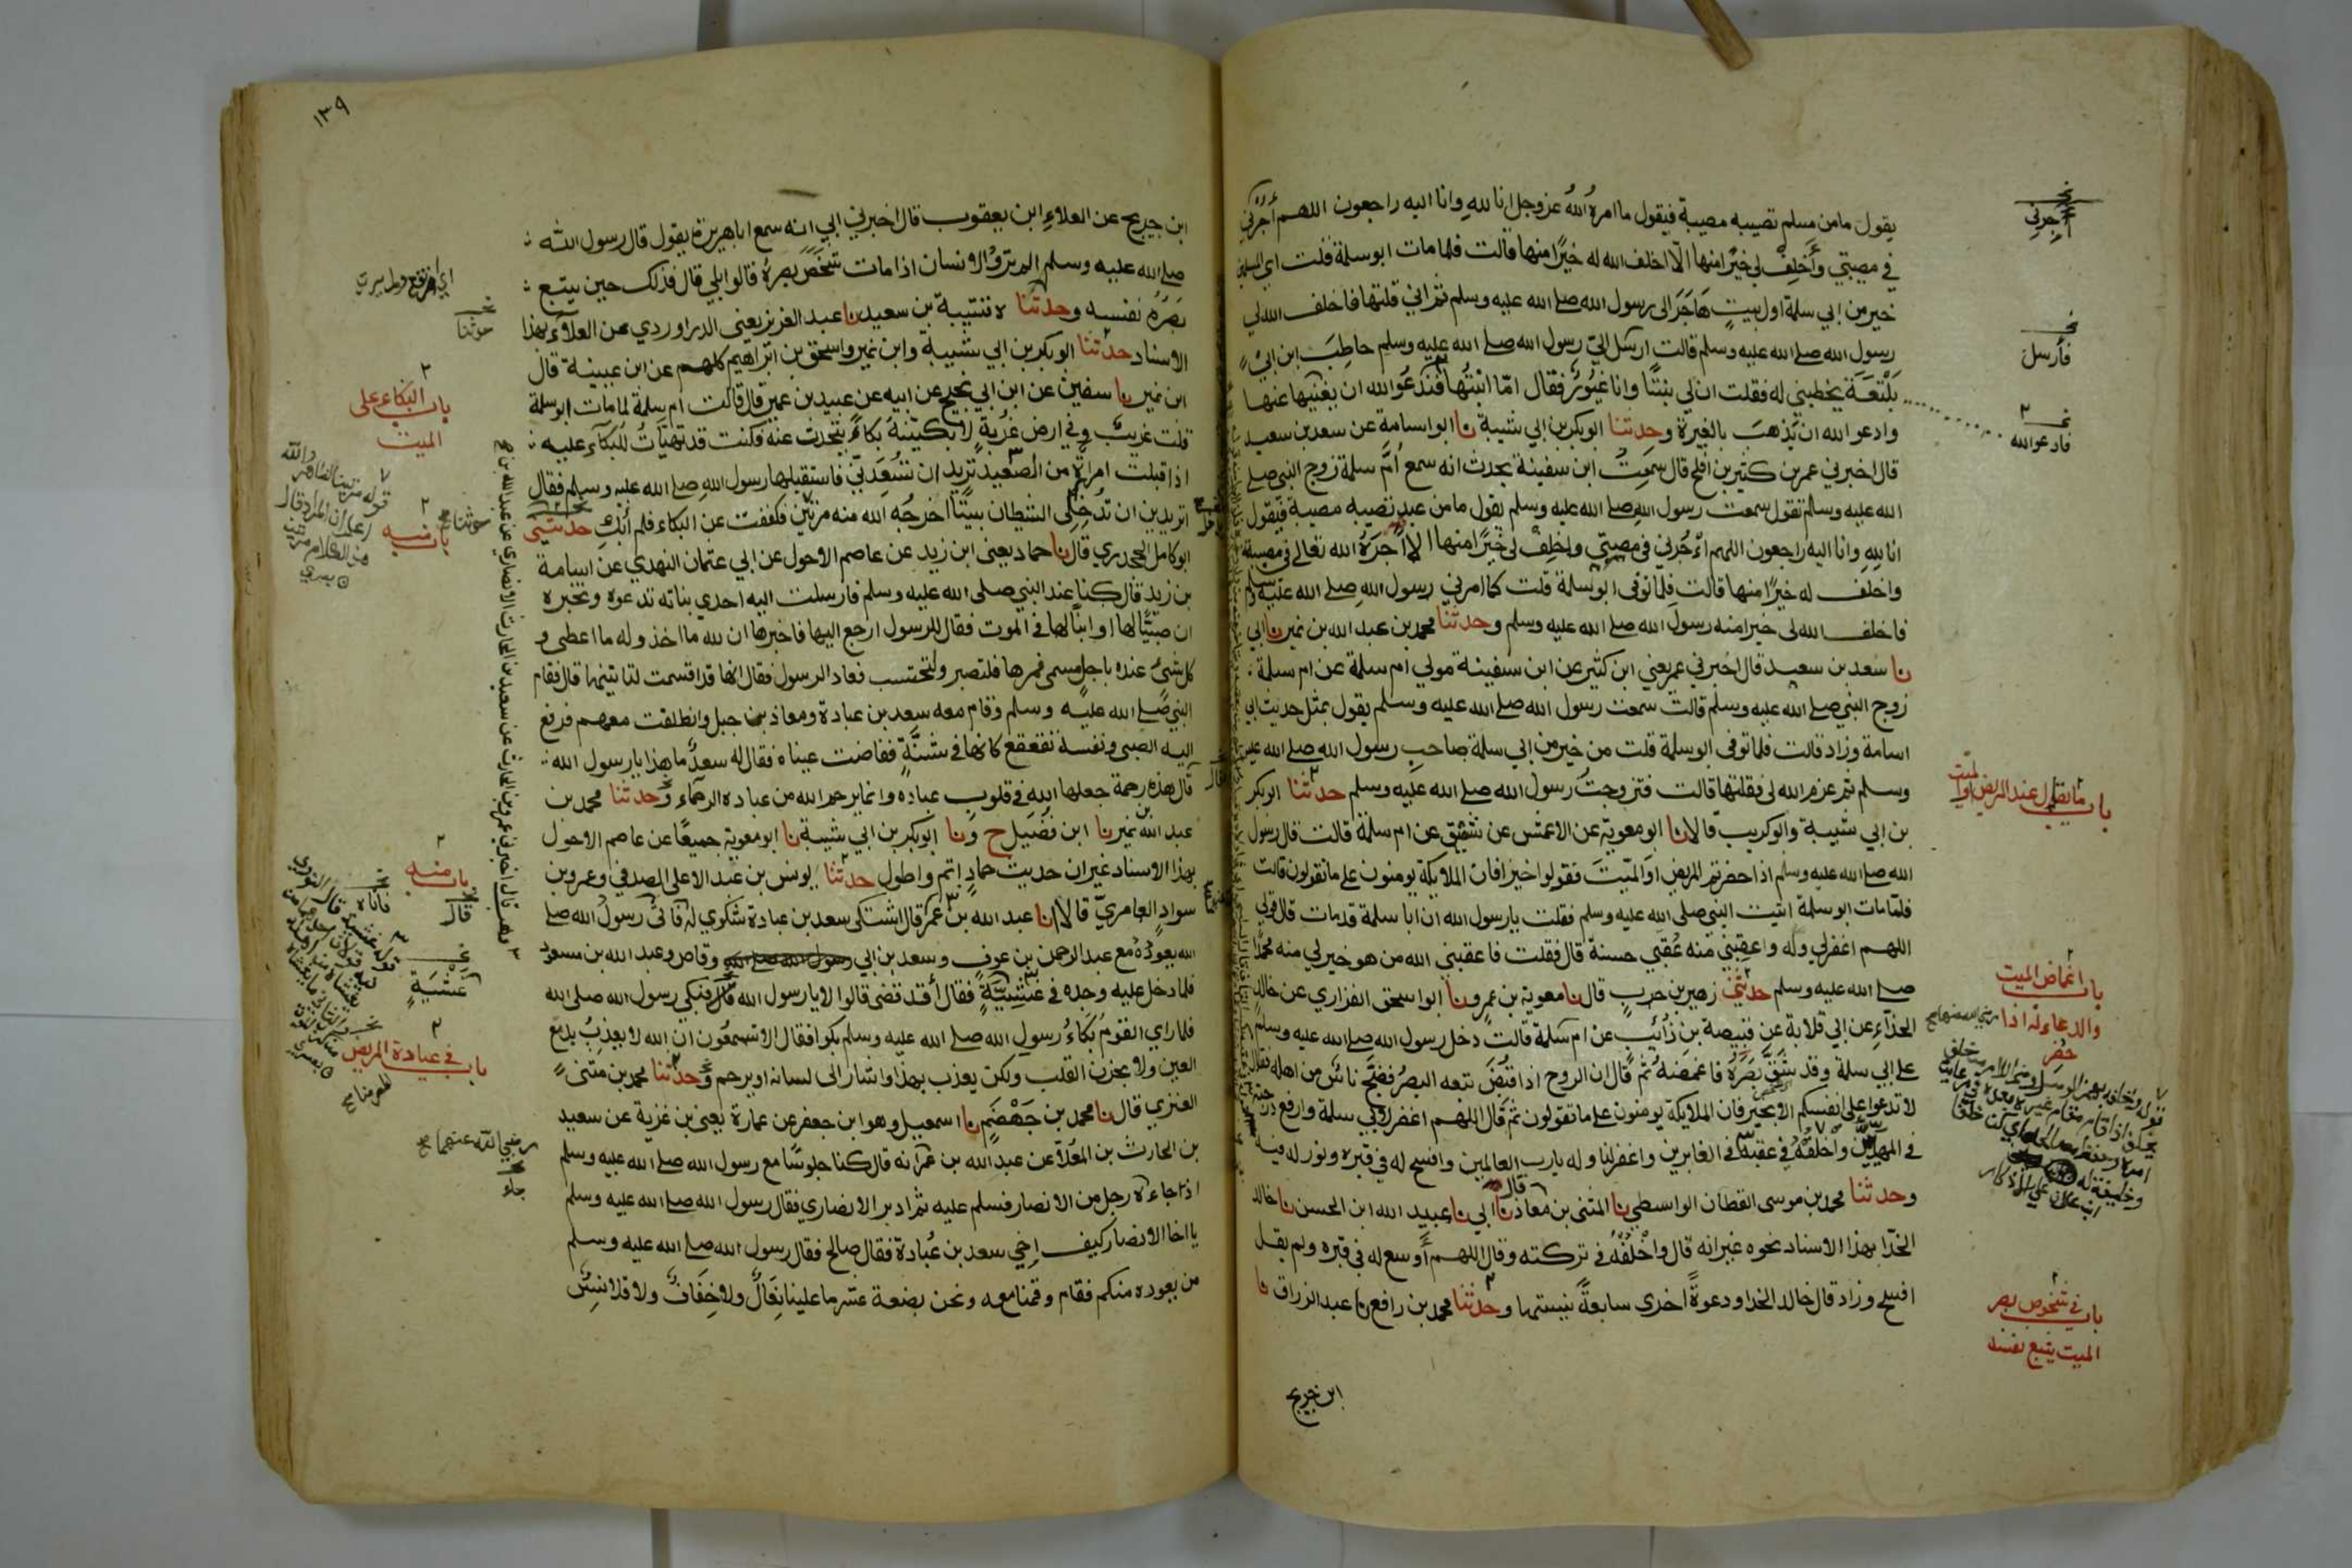 يقول مامن مسلم تصيبه مصيبة فيقول ما امره الله عز وجل انا لله وانا اليه راجعون اللهم أجرني
في مصيبتي وأخلف لي خيرا منها الا اخلف الله له خيرا منها قالت فلما مات ابو سلمة قلت اي المسلمين
خير من ابي سلمة اول بيت هاجر الى رسول الله صلى الله عليه وسلم ثم اني قلتها فاخلف الله لي
رسول الله صلى الله عليه وسلم قالت ارسل الي رسول الله صلى الله عليه وسلم حاطب ابن ابي
بلتعة يخطبني له فقلت ان لي بنتا وانا غيور فقال اما ابنتها فندعو الله ان يغنيها عنها
وادعو الله ان يذهب بالغيرة وحدثنا ابو بكر بن ابي شيبة نا ابو اسامة عن سعد بن سعيد
قال اخبرني عمر بن كثير بن افلح قال سمعت ابن سفينة يحدث انه سمع أم سلمة زوج النبي صلى
الله عليه وسلم تقول سمعت رسول الله صلى الله عليه وسلم يقول مامن عبد تصيبه مصيبة فيقول
انا لله وانا اليه راجعون اللهم أجرني في مصيبتي واخلف لي خيرا منها الا اجره الله تعالى في مصيبته
واخلف له خيرا منها قالت فلما توفى ابو سلمة قلت كما امرني رسول الله صلى الله عليه وسلم
فاخلف الله لي خيرا منه رسول الله صلى الله عليه وسلم وحدثنا محمد بن عبد الله بن نمير نا ابي
نا سعد بن سعيد قال اخبرني عمر يعني ابن كثير عن ابن سفينة مولى ام سلمة عن ام سلمة
زوج النبي صلى الله عليه وسلم قالت سمعت رسول الله صلى الله عليه وسلم يقول بمثل حديث ابي
اسامة وزاد قالت فلما توفى ابو سلمة قلت من خير من ابي سلمة صاحب رسول الله صلى الله عليه
وسلم ثم عزم الله لي فقلتها قالت فتزوجت رسول الله صلى الله عليه وسلم حدثنا ابو بكر
بن ابي شيبة وابو كريب قالا نا ابو معوية عن الاعمش عن شقيق عن ام سلمة قالت قال رسول
الله صلى الله عليه وسلم اذا حضرتم المريض او الميت فقولوا خيرا فان الملايكة يومنون على ما تقولون قالت
فلما مات ابو سلمة اتيت النبي صلى الله عليه وسلم فقلت يا رسول الله ان ابا سلمة قد مات قال قولي
اللهم اغفر لي وله واعقبني منه عقبى حسنة قال فقلت فاعقبني الله من هو خير لي منه محمدا
صلى الله عليه وسلم حدثني زهير بن حرب قال نا معوية بن عمرو نا ابو اسحق الفزاري عن خالد
الحذاء عن ابي قلابة عن قبيصة بن ذؤيب عن ام سلمة قالت دخل رسول الله صلى الله عليه وسلم
على ابي سلمة وقد شق بصره فاغمضه ثم قال ان الروح اذا قبض تبعه البصر فضج ناس من اهله فقال
لا تدعوا على انفسكم الا بخير فان الملايكة يومنون على ما تقولون ثم قال اللهم اغفر لابي سلمة وارفع درجته
في المهديين واخلفه في عقبه في الغابرين واغفر لنا وله يارب العالمين وافسح له في قبره ونور له فيه
وحدثنا محمد بن موسى القطان الواسطي نا المثنى بن معاذ نا ابي نا عبيد الله ابن الحسن نا خالد
الحذا بهذا الاسناد نحوه غير انه قال واخلفه في تركته وقال اللهم أوسع له في قبره ولم يقل
افسح وزاد قال خالد الحذا ودعوة اخرى سابعة نسيتها وحدثنا محمد بن رافع نا عبد الرزاق نا
ابن جريج
أجرني
فأرسل
فادعو الله
باب ما يقول عند المريض او الميت
باب اغماض الميت
والدعاء له اذا
حضر
باب في شخوص بصر
الميت يتبع نفسه
١٣٩
ابن جريج عن العلاء ابن يعقوب قال اخبرني ابي انه سمع ابا هريرة يقول قال رسول الله
صلى الله عليه وسلم الم تروا الانسان اذا مات شخص بصره قالوا بلى قال فذلك حين يتبع
بصره نفسه وحدثنا ه قتيبة بن سعيد نا عبد العزيز يعني الدراوردي عن العلاء بهذا
الاسناد حدثنا ابو بكر بن ابي شيبة وابن نمير واسحق بن ابراهيم كلهم عن ابن عيينة قال
ابن نمير نا سفين عن ابن ابي نجيح عن ابيه عن عبيد بن عمير قال قالت ام سلمة لما مات ابو سلمة
قلت غريب وفي ارض غربة لابكينه بكاء يتحدث عنه فكنت قد تهيأت للبكاء عليه
اذ اقبلت امراة من الصعيد تريد ان تسعدني فاستقبلها رسول الله صلى الله عليه وسلم فقال
اتريدين ان تدخلي الشيطان بيتا اخرجه الله منه مرتين فكففت عن البكاء فلم أبك حدثني
ابو كامل الجحدري قال نا حماد يعني ابن زيد عن عاصم الاحول عن ابي عثمان النهدي عن اسامة
بن زيد قال كنا عند النبي صلى الله عليه وسلم فارسلت اليه احدى بناته تدعوه وتخبره
ان صبيا لها او ابنا لها في الموت فقال للرسول ارجع اليها فاخبرها ان لله ما اخذ وله ما اعطى و
كل شئ عنده باجل مسمى فمرها فلتصبر ولتحتسب فعاد الرسول فقال انها قد اقسمت لتاتينها قال فقام
النبي صلى الله عليه وسلم وقام معه سعد بن عبادة ومعاذ بن جبل وانطلقت معهم فرفع
اليه الصبي ونفسه تقعقع كانها في شنة ففاضت عيناه فقال له سعد ما هذا يا رسول الله
قال هذه رحمة جعلها الله في قلوب عباده وانما يرحم الله من عباده الرحماء وحدثنا محمد بن
عبد الله بن نمير نا ابن فضيل ح ونا ابو بكر بن ابي شيبة نا ابو معوية جميعا عن عاصم الاحول
بهذا الاسناد غير ان حديث حماد اتم واطول حدثنا يونس بن عبد الاعلى الصدفي وعمرو بن
سواد العامري قالا نا عبد الله بن عمر قال اشتكى سعد بن عبادة شكوى له فاتى رسول الله صلى
الله يعوده مع عبد الرحمن بن عوف وسعد بن ابي رسول الله صلى الله وقاص وعبد الله بن مسعود
فلما دخل عليه وجده في غشية فقال أقد قضى قالوا لا يا رسول الله قال فبكى رسول الله صلى الله
فلما راي القوم بكاء رسول الله صلى الله عليه وسلم بكوا فقال الا تسمعون ان الله لا يعذب بدمع
العين ولا بحزن القلب ولكن يعذب بهذا واشار الى لسانه او يرحم وحدثنا محمد بن مثنى
العنزي قال نا محمد بن جهضم نا اسمعيل وهو ابن جعفر عن عمارة يعني بن غزية عن سعيد
بن الحارث بن المعلا عن عبد الله بن عمر انه قال كنا جلوسا مع رسول الله صلى الله عليه وسلم
اذا جاءه رجل من الانصار فسلم عليه ثم ادبر الانصاري فقال رسول الله صلى الله عليه وسلم
يا اخا الانصار كيف اخي سعد بن عبادة فقال صالح فقال رسول الله صلى الله عليه وسلم
من يعوده منكم فقام وقمنا معه ونحن بضعة عشر ما علينا نعال ولا خفاف ولا قلانس
حدثنا
باب البكاء على
الميت
باب منه
باب منه
قال
غشية
باب في عيادة المريض
رضي الله عنهما صح
جاء